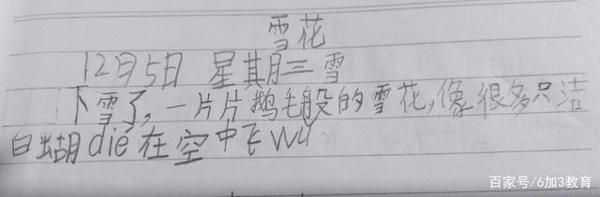 雪花
12月5日 星期三 雪
下雪了，一片片鹅毛般的雪花，像很多只洁
白蝴die在空中飞wu。
百家号/6加3教育